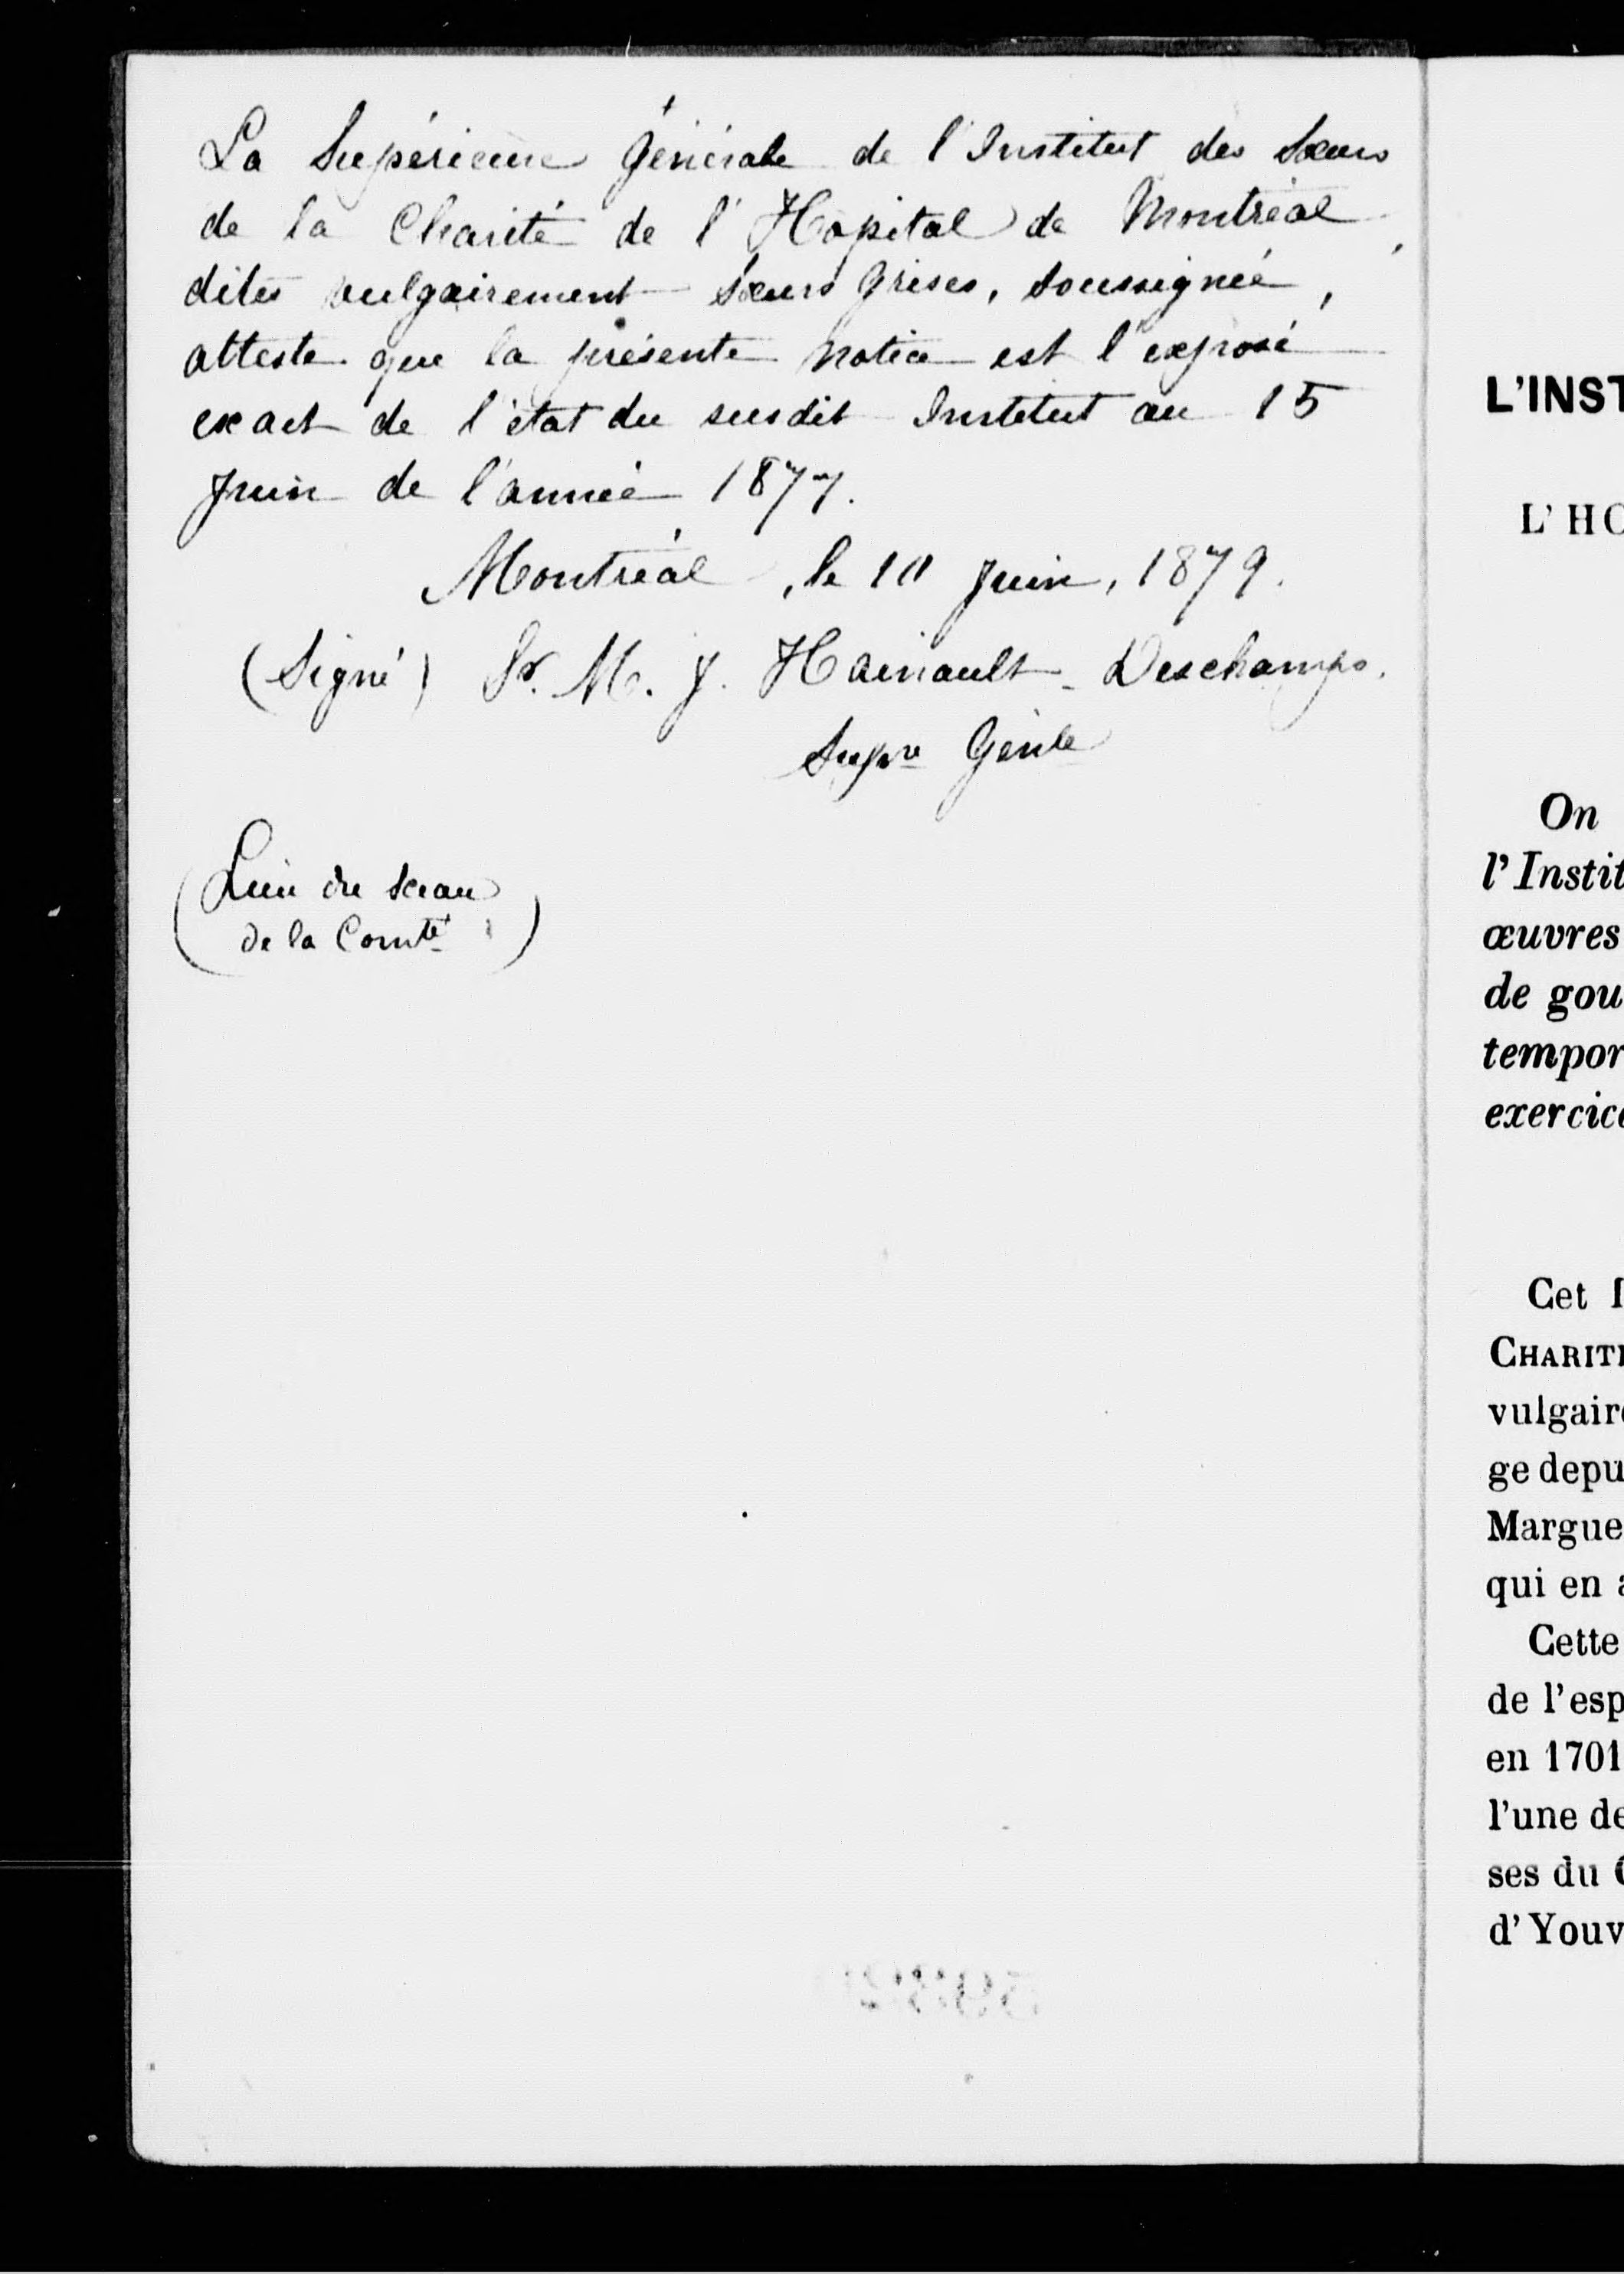 La Supérieure Générale de l'Institut des Sœurs
de la Charité de l'Hôpital de Montréal,
dites vulgairement Sœurs Grises, soussignée,
atteste que la présente notice est l'exposé
exact de l'état du susdit Institut au 15
Juin de l'année 1877.
Montréal, le 10 Juin, 1879.
(Signé) Sr. M. J. Hainault-Deschamps.
Supre Génle
(Lieu du sceau
de la Comté)
L'INST
L'HO
On
l'Instit
œuvres
de gou
tempor
exercic
Cet I
CHARIT
vulgair
ge depu
Margue
qui en
Cette
de l'esp
en 1701
l'une de
ses du
d'Youv